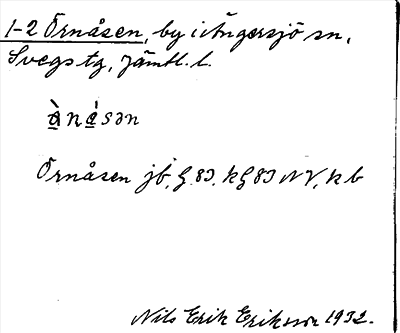 1-2 Örnåsen, by i Ängersjö sn,
Svegs tg, Jämtl. l.
Örnåsen jb,
Nils Erik Eriksson 1932.